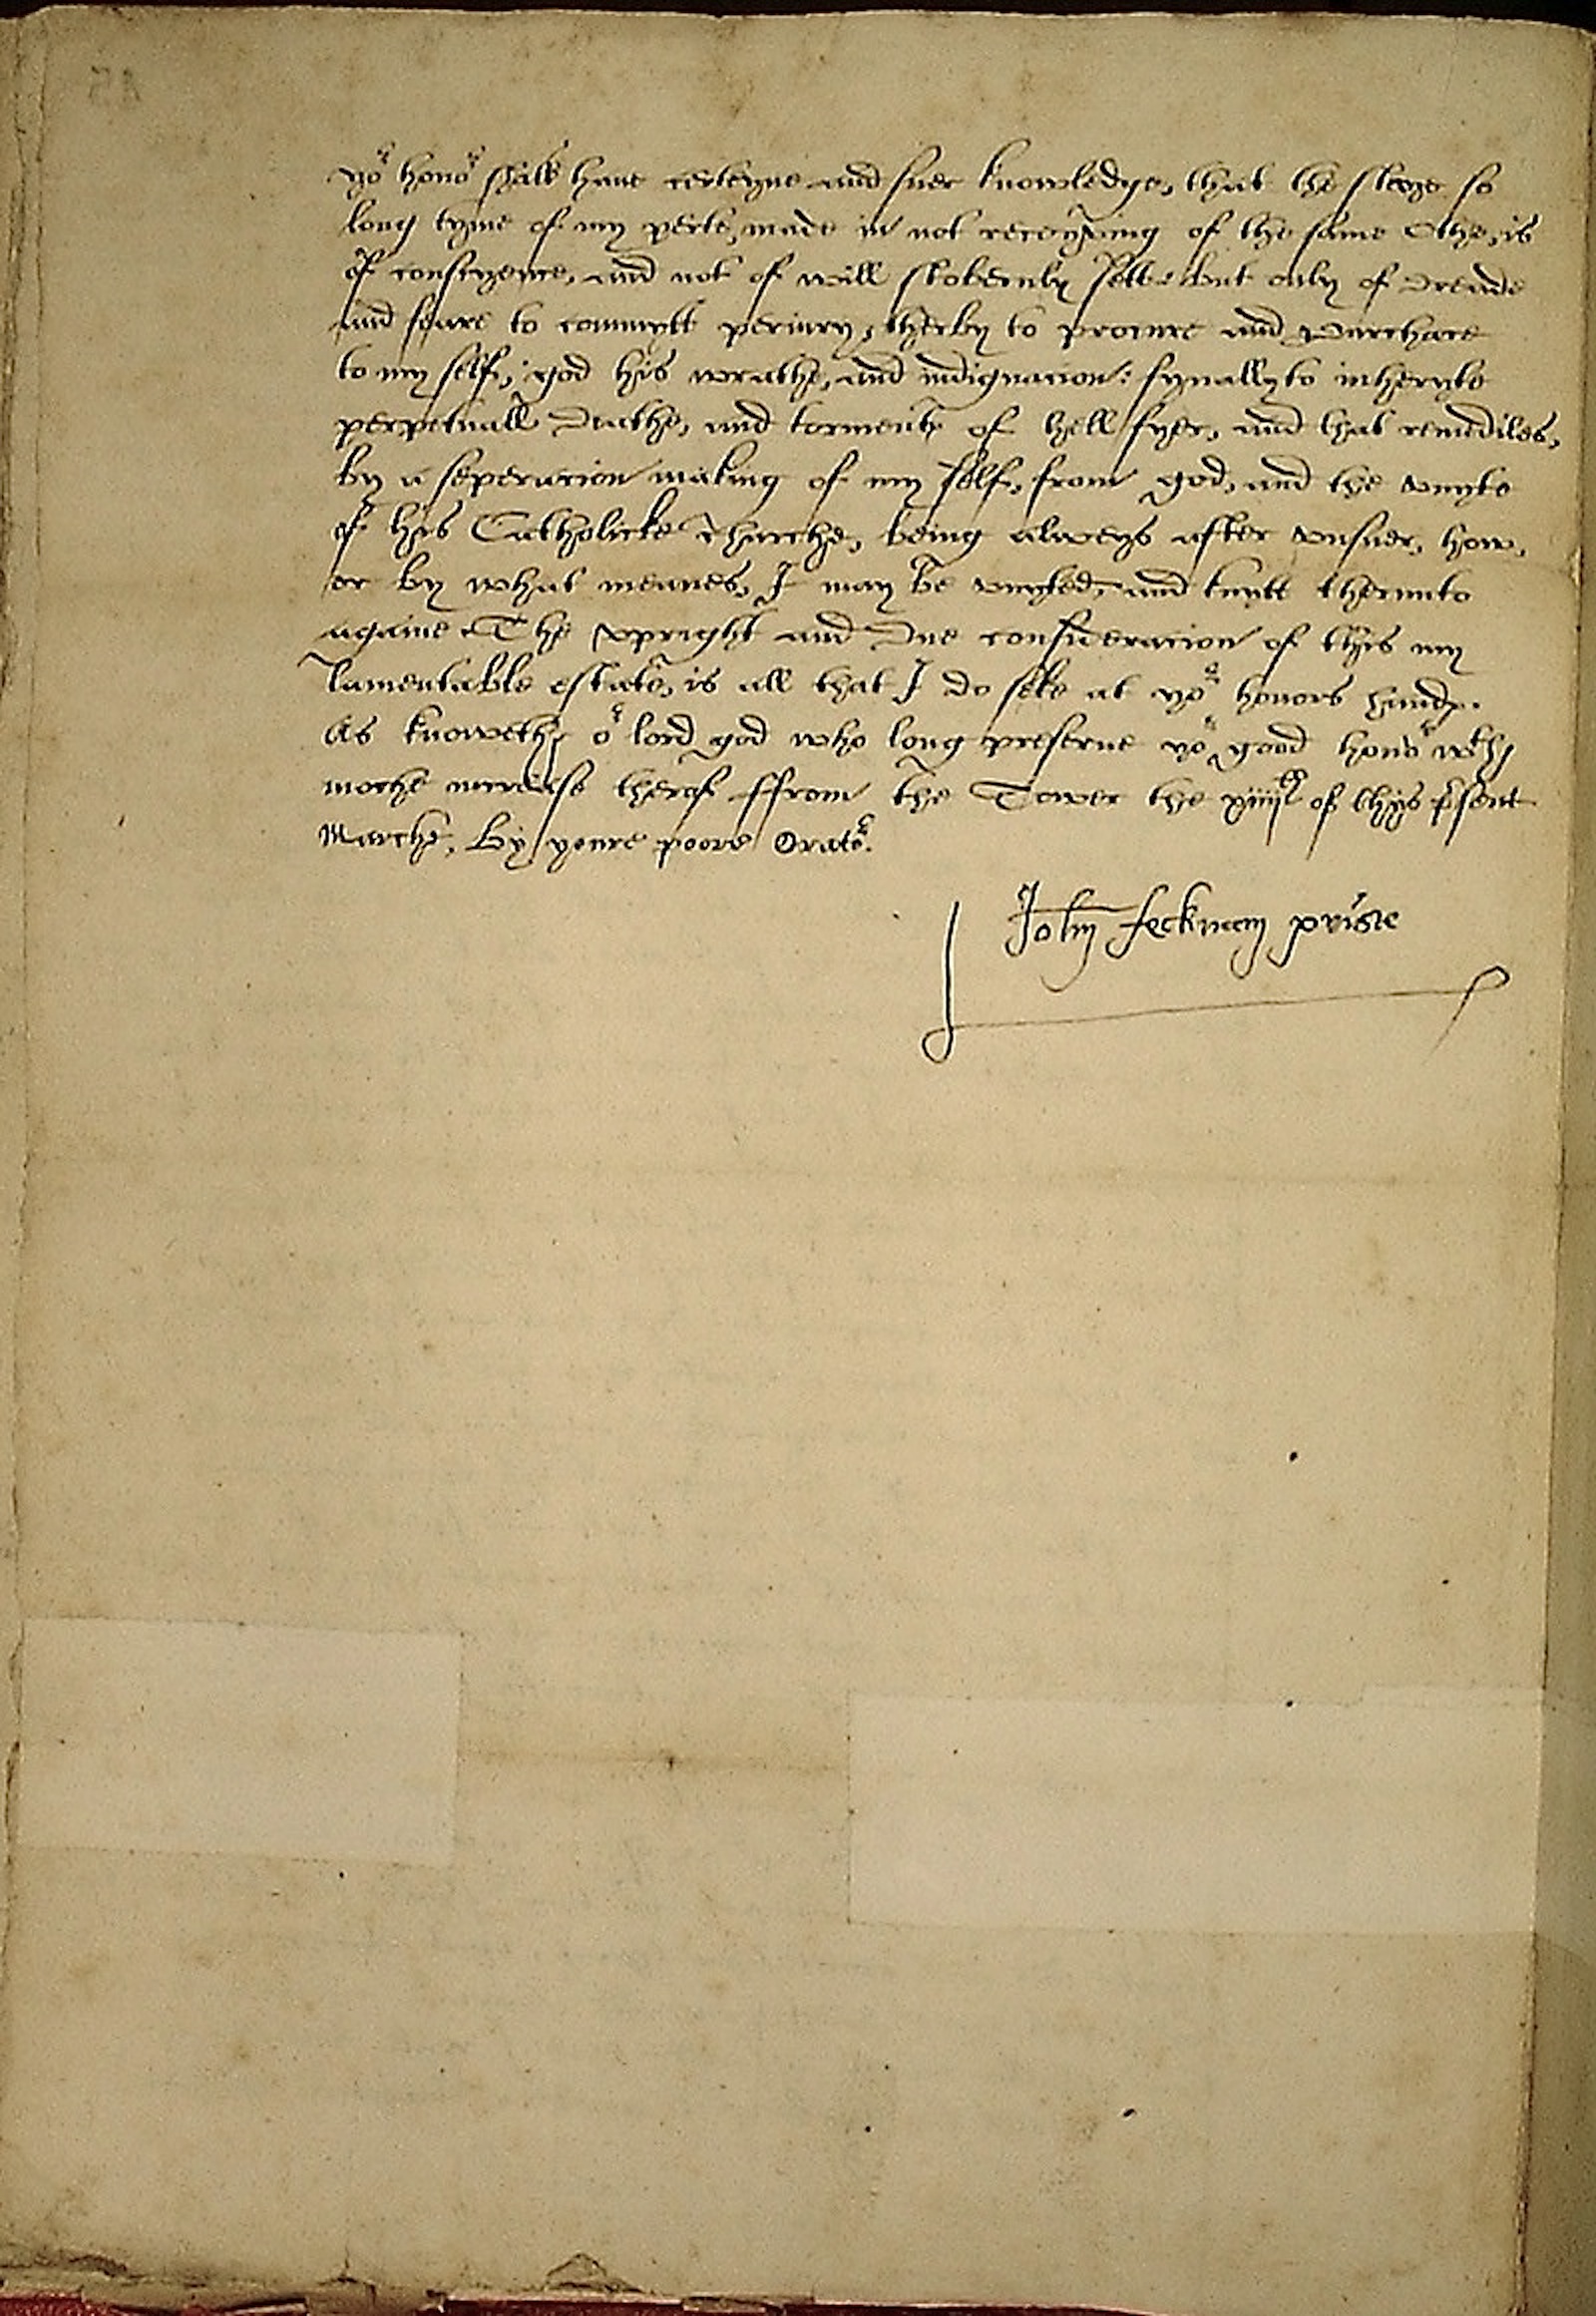 yor honor shall have certeyne and suer knowledge, that the steye so
long tyme of my perte, made in not receyving of the same Othe, is
of conscyence, and not of will stobernly sett: but only of dreade
and feare to commytt periury, therby to procure and purchace
to my self, god his wrathe, and indignacion: fynally to inheryte
perpetuall deathe, and torments of hell fyer, and that remediles,
by a seperacion making of my self, from god, and the vnyte
of his Catholicke churche, being alweys after vnsuer, how,
or by what meanes, I may be vnyted, and knytt therunto
againe. The vpright and due consideracion of this my
lamentable estate, is all that I do seke at yor honors hands.
As knoweth or lord god who long preserue yor good honor wth
moche increase therof ffrom the Tower the xiiijth of thys psent
Marche, By youre poore Orator.
John fecknam priste